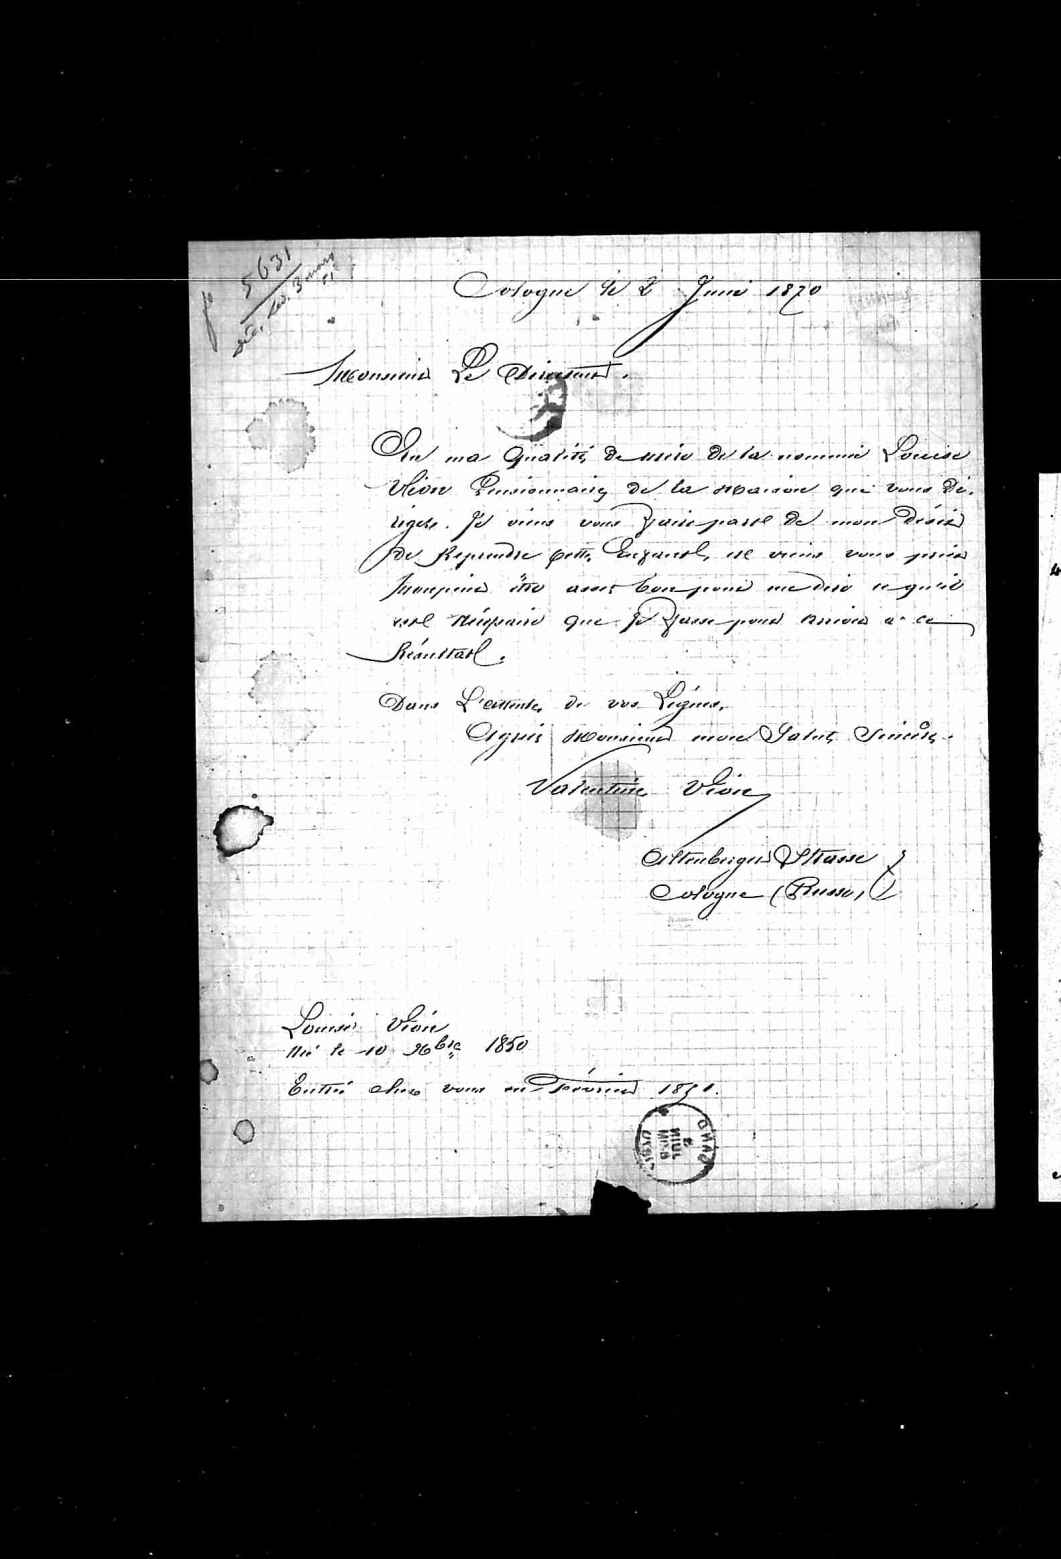 5631
3 mars 51
Cologne le 2 Juin 1870
Monsieur Le Directeur.
En ma qualité de mère de la nommée Louise
Vion Pensionnaire de la Maison que vous di-
rigez. Je viens vous faire part de mon désir
de Reprendre cette Enfant, et viens vous prier
Monsieur être assez bon pour me dire ce qu'il
est Nécessaire que je fasse pour arriver à ce
Résultat.
Dans L'attente de vos Lignes.
Agréez Monsieur mon Salut Sincère.
Valentine Vion
Altenberger Strasse
Cologne (Prusse)
Louise Vion
Né le 10 9bre 1850
Entré chez vous en Février 1851.
GAND
2
JUIN
1870